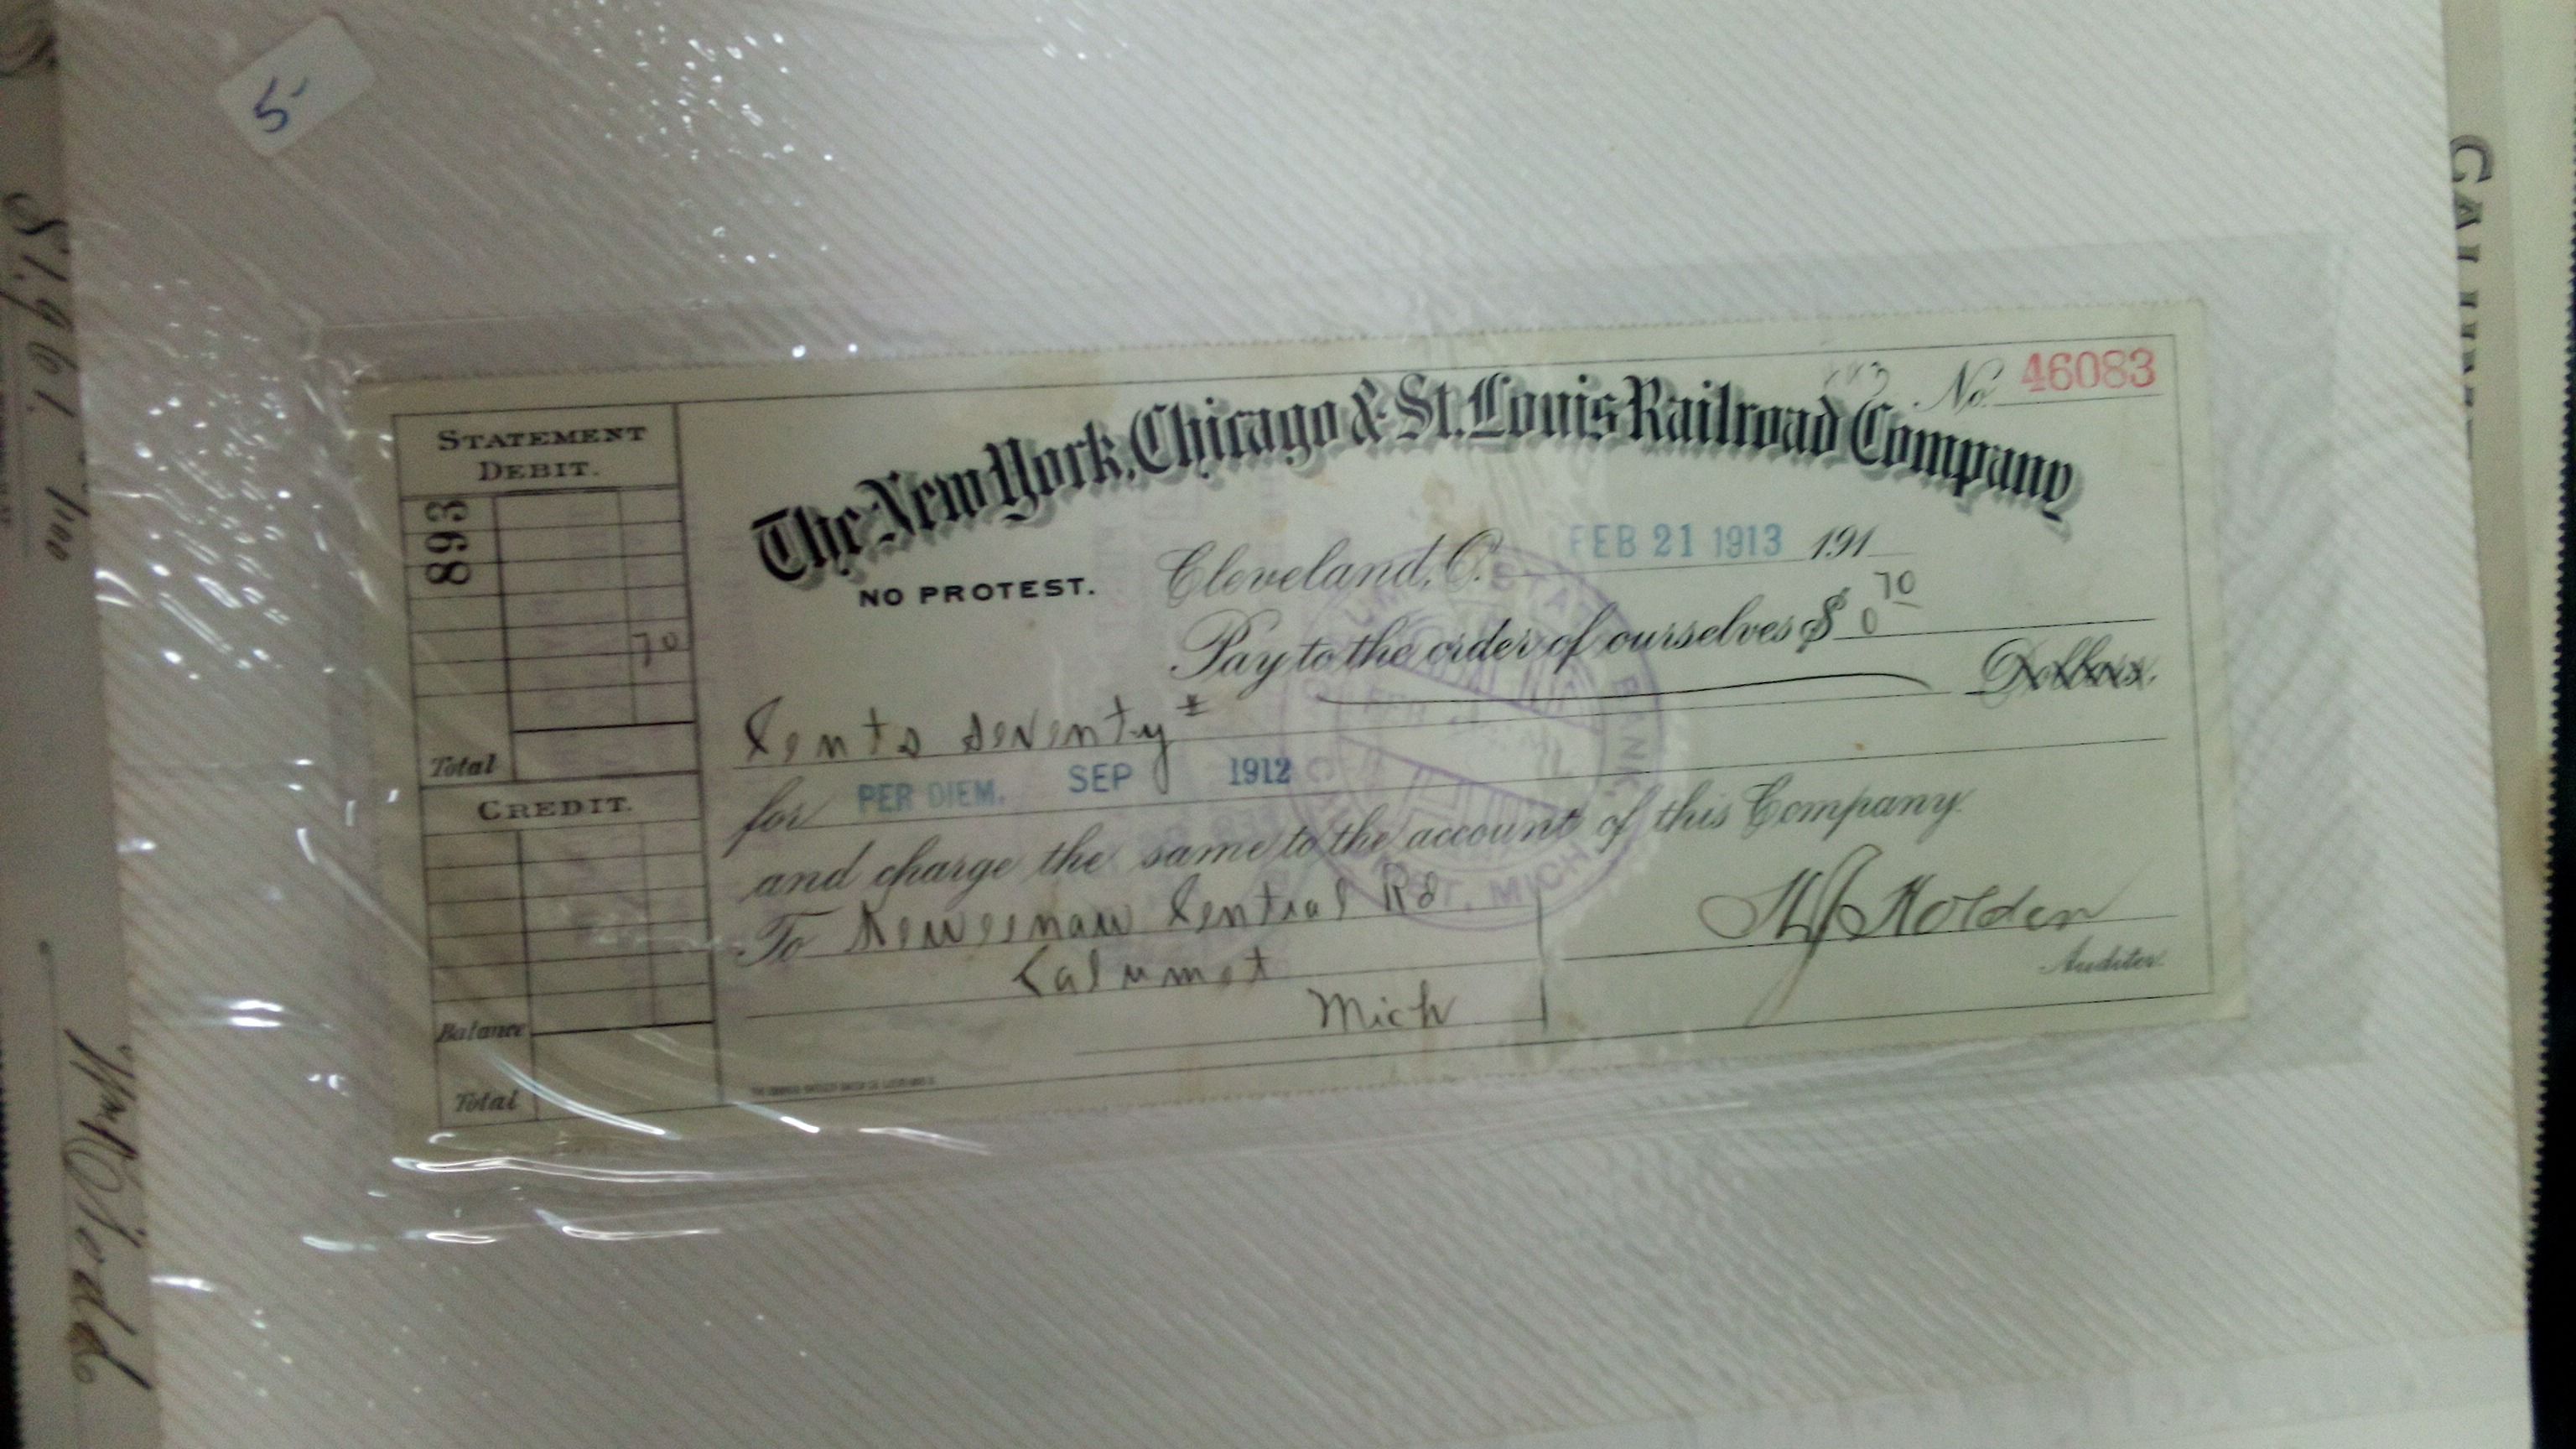 5-
No. 46083
The New York, Chicago & St. Louis Railroad Company
NO PROTEST.
Cleveland, O. FEB 21 1913 191
Pay to the order of ourselves $ 0 70
Dollars.
Cents Seventy
for PER DIEM. SEP 1912
and charge the same to the account of this Company.
To Keweenaw Central Rd
Calumet
Mich
Holden
Auditor.
STATEMENT
DEBIT.
893
70
Total
CREDIT.
Balance
Total
STATE BANK
MICH.